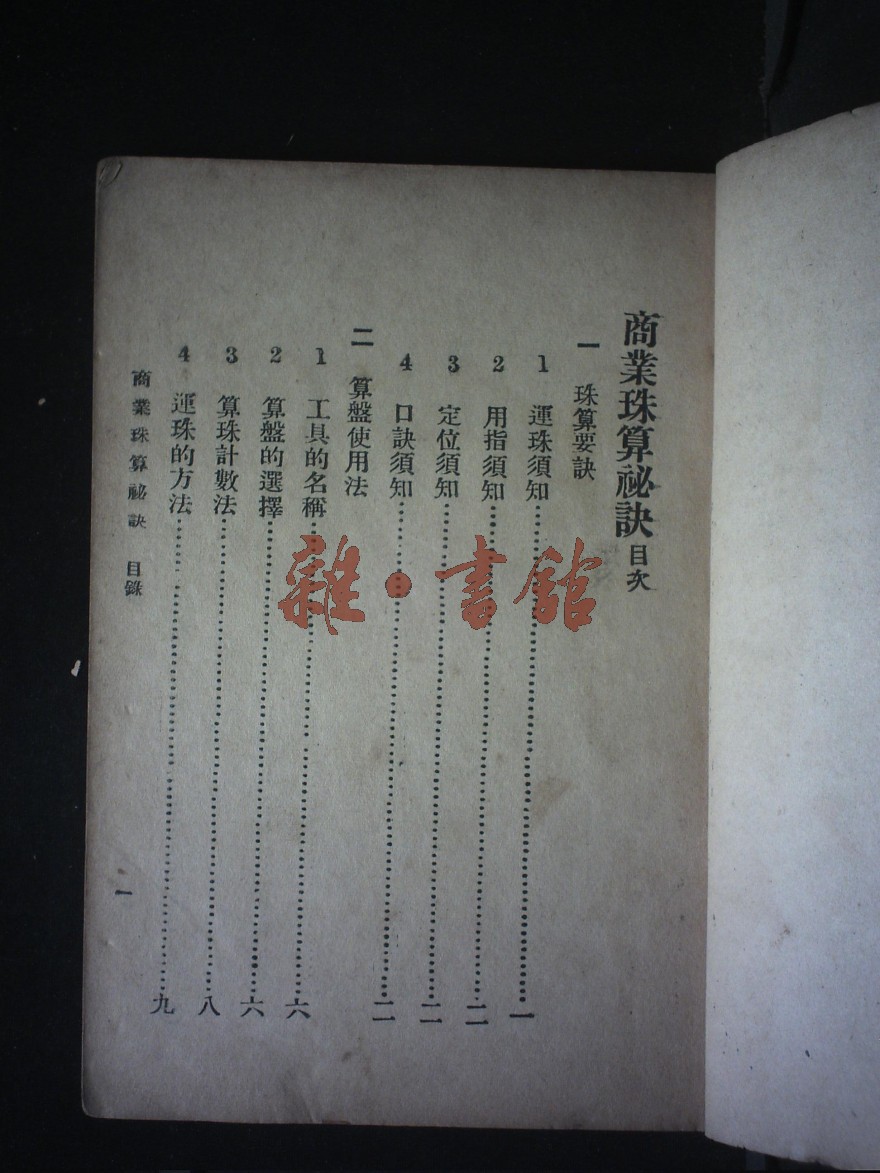 商業珠算祕訣目次
一 珠算要訣
1 運珠須知……一
2 用指須知……二
3 定位須知……二
4 口訣須知……二
二 算盤使用法
1 工具的名稱……六
2 算盤的選擇……六
3 算珠計數法……八
4 運珠的方法……九
商業珠算祕訣 目錄
一
雜·書館